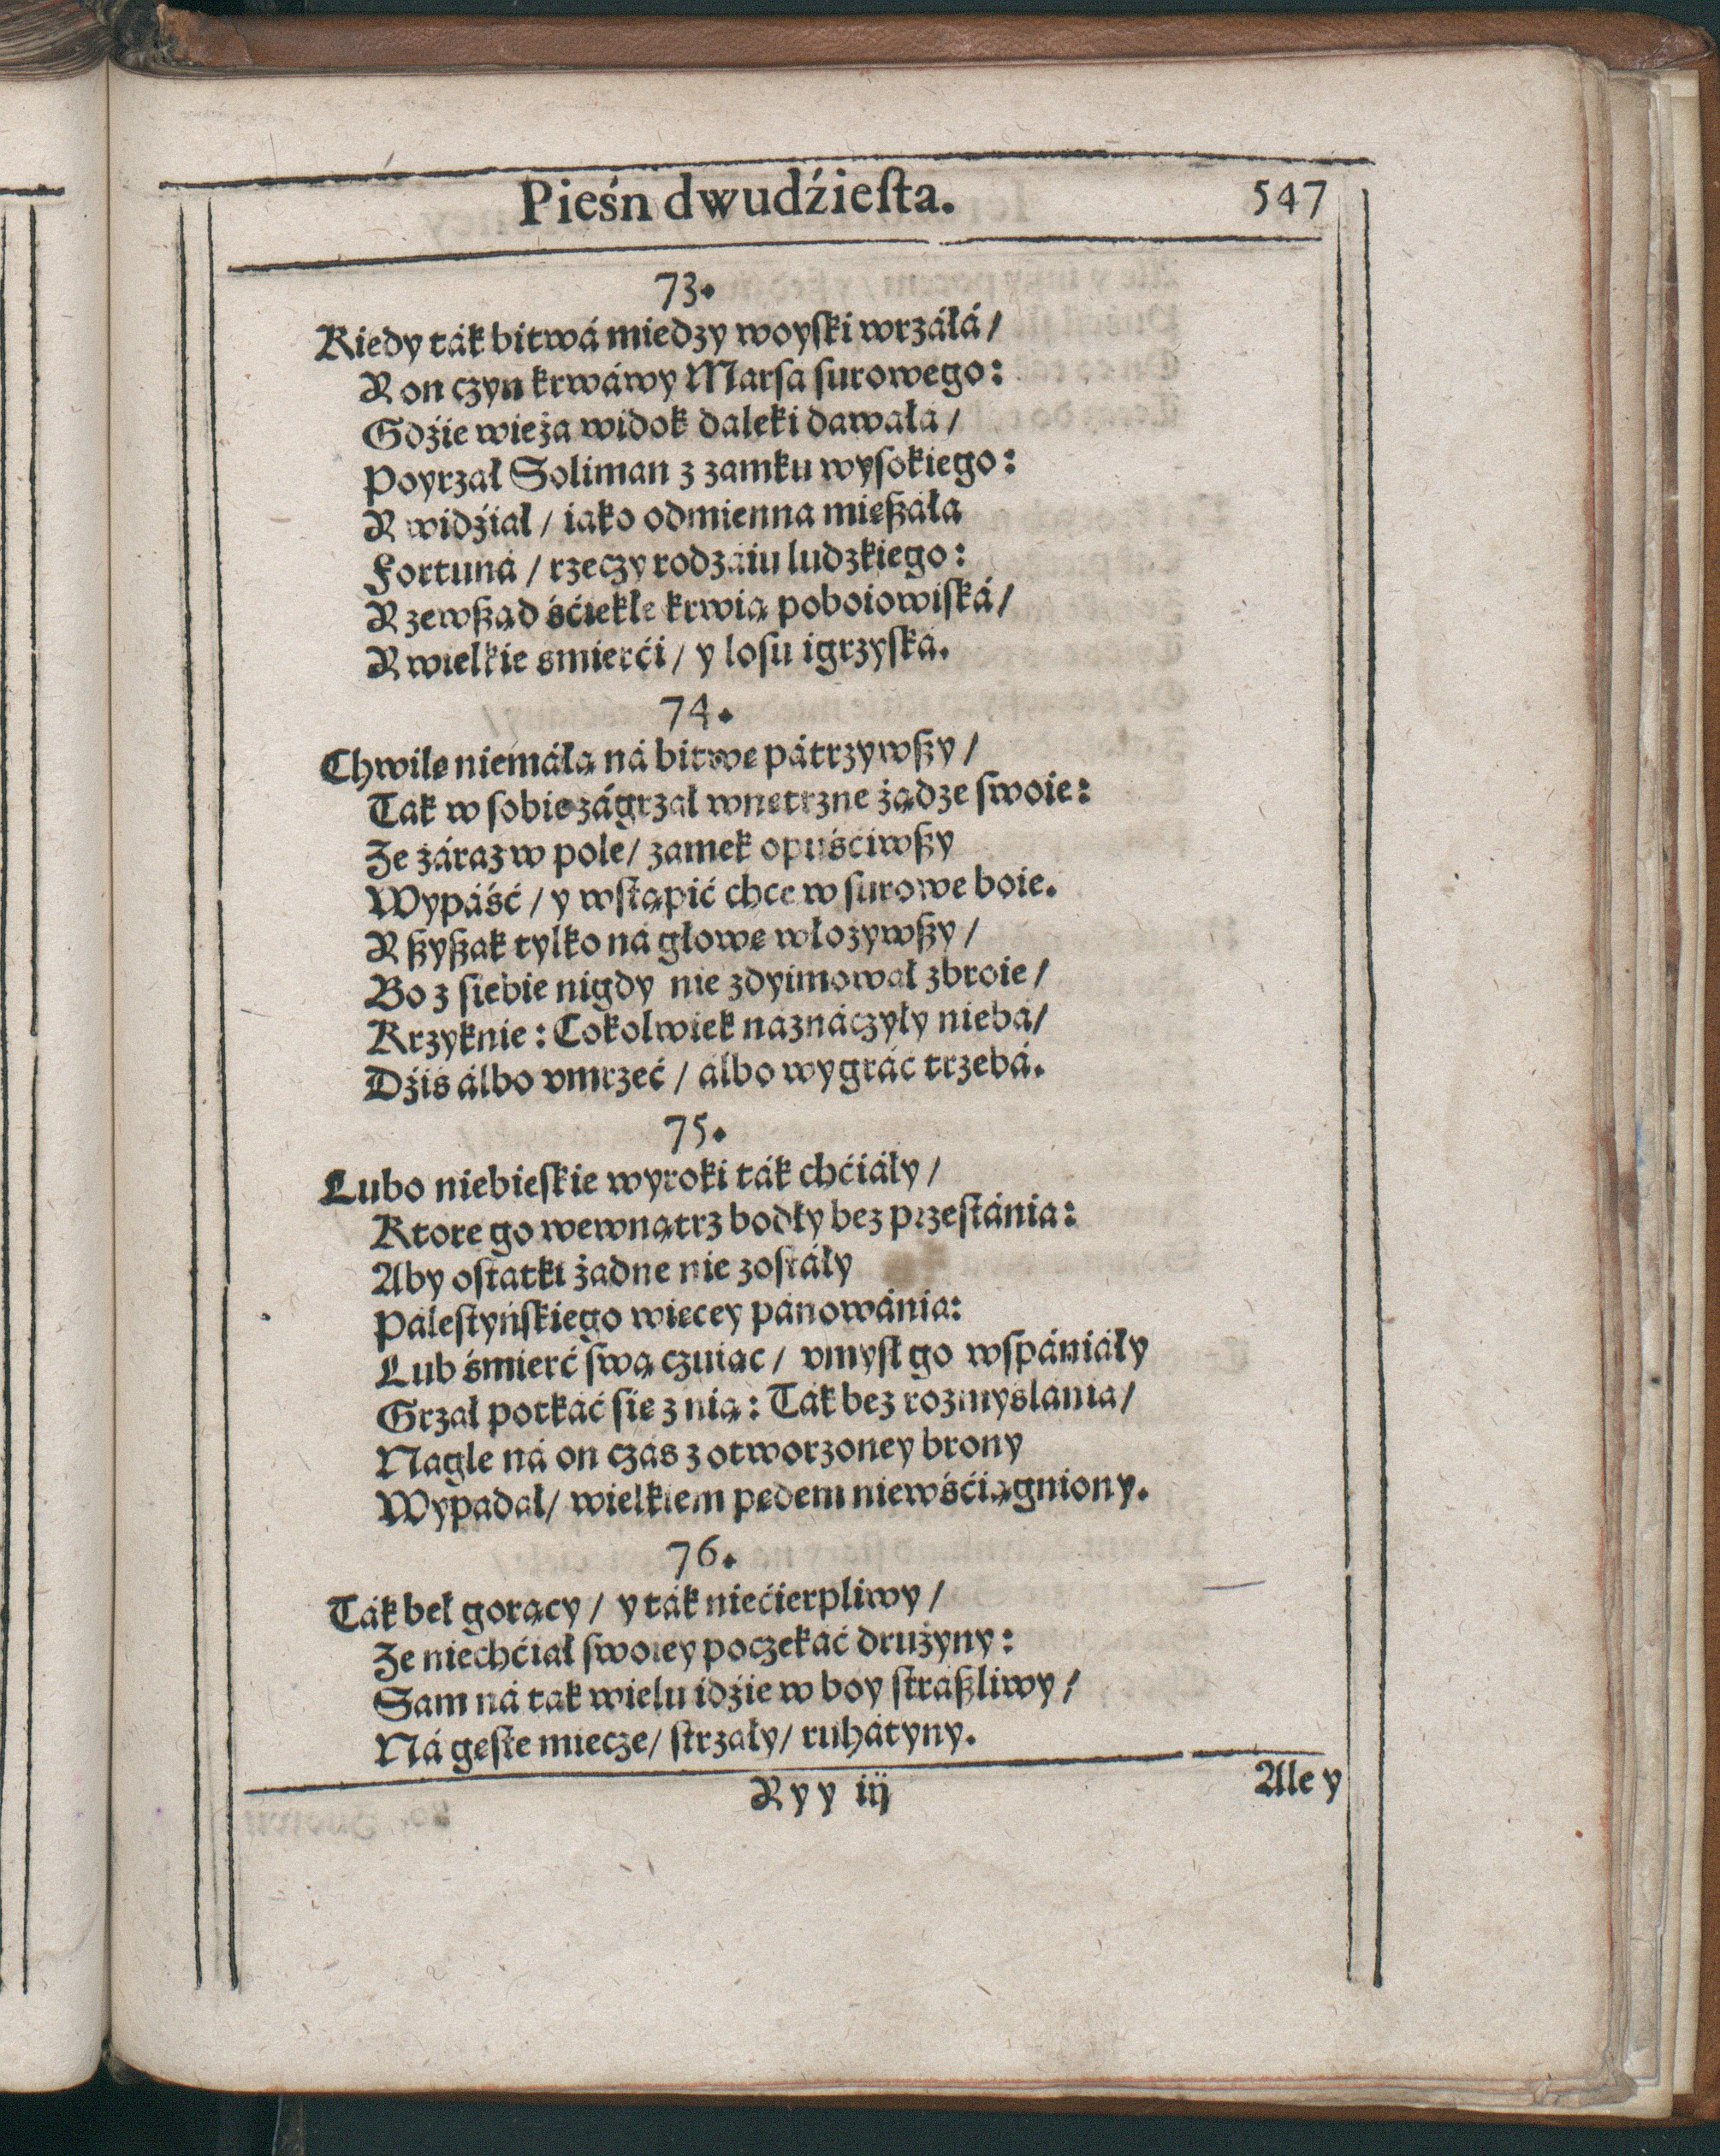 Pieśn dwudźieſta. 547
73.
Kiedy ták bitwá miedzy woyſki wrzáłá /
Y on czyn krwáwy Marſa ſurowego:
Gdźie wieża widok daleki dawałá /
Poyrzał Soliman z zamku wyſokiego:
Y widźiał / iako odmienna mięßáła
Fortuná / rzeczy rodzáiu ludzkiego:
Y zewßąd śćiekłe krwią poboiowiſká /
Y wielkie smierći / y loſu igrzyſká.
74.
Chwilę niemáłą ná bitwę pátrzywßy /
Tak w ſobie zágrzał wnętrzne żądze ſwoie:
Ze záraz w pole / zamek opuśćiwßy
Wypáść / y wſtąpić chce w ſurowe boie.
Y ßyßak tylko ná głowę włożywßy /
Bo z ſiebie nigdy nie zdyimował zbroie /
Krzyknie: Cokolwiek náznáczyły niebá /
Dźiś álbo vmrzeć / álbo wygráć trzebá.
75.
Lubo niebieſkie wyroki ták chćiáły /
Ktore go wewnątrz bodły bez przeſtánia:
Aby oſtatki żadne nie zoſtáły
Páleſtyńſkiego więcey pánowánia:
Lub śmierć ſwą czuiąc / vmyſł go wſpániáły
Grzał potkáć ſię z nią: Ták bez rozmyślania /
Nagle ná on czás z otworzoney brony
Wypadał / wielkiem pędem niewśćiągniony.
76.
Ták beł gorący / y ták niećierpliwy /
Ze niechćiał ſwoiey poczekáć drużyny:
Sam ná tak wielu idźie w boy ſtraßliwy /
Ná gęſte miecze / ſtrzały / ruhátyny.
Yyy iij Ale y